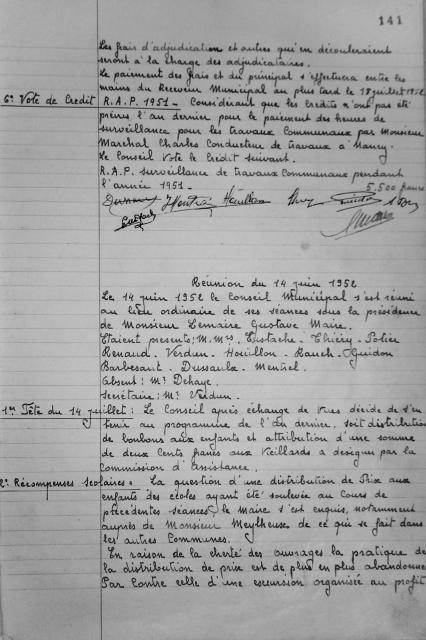 141
Les frais d'adjudication et autres qui en découleraient
seront à la charge des adjudicataires.
Le paiement des frais et du principal s'effectuera entre les
mains du Receveur Municipal au plus tard le 18 juillet 1952.
6° Vote de Crédit R.A.P. 1951 - Considérant que les crédits n'ont pas été
prévus l'an dernier pour le paiement des heures de
surveillance pour les travaux Communaux par Monsieur
Marchal Charles Conducteur de travaux à Nancy.
Le Conseil Vote le Crédit suivant.
R.A.P. surveillance de travaux Communaux pendant
l'année 1951 - 5.500 francs
Réunion du 14 juin 1952
Le 14 juin 1952 le Conseil Municipal s'est réuni
au lieu ordinaire de ses séances sous la présidence
de Monsieur Lemaire Gustave Maire.
Etaient présents: M.Mrs. Eustache - Thiéry -
Renaud - Verdun - Houillon - Rauch - Guidon
Barbesant - Dussaulx - Mentrel.
Absent: Mr Dehaye.
Secrétaire: Mr Verdun.
1° Fête du 14 juillet: Le Conseil après échange de vues décide de s'en
tenir au programme de l'an dernier, soit distribution
de bonbons aux enfants et attribution d'une somme
de deux Cents francs aux Vieillards a désigner par la
Commission d'assistance.
2° Récompenses scolaires. La question d'une distribution de Prix aux
enfants des écoles ayant été soulevée au Cours de
précédentes séances, le Maire s'est enquis, notamment
auprès de Monsieur de ce qui se fait dans
les autres Communes.
En raison de la cherté des ouvrages la pratique de
la distribution de prix est de plus en plus abandonnée
Par Contre celle d'une excursion organisée au profit